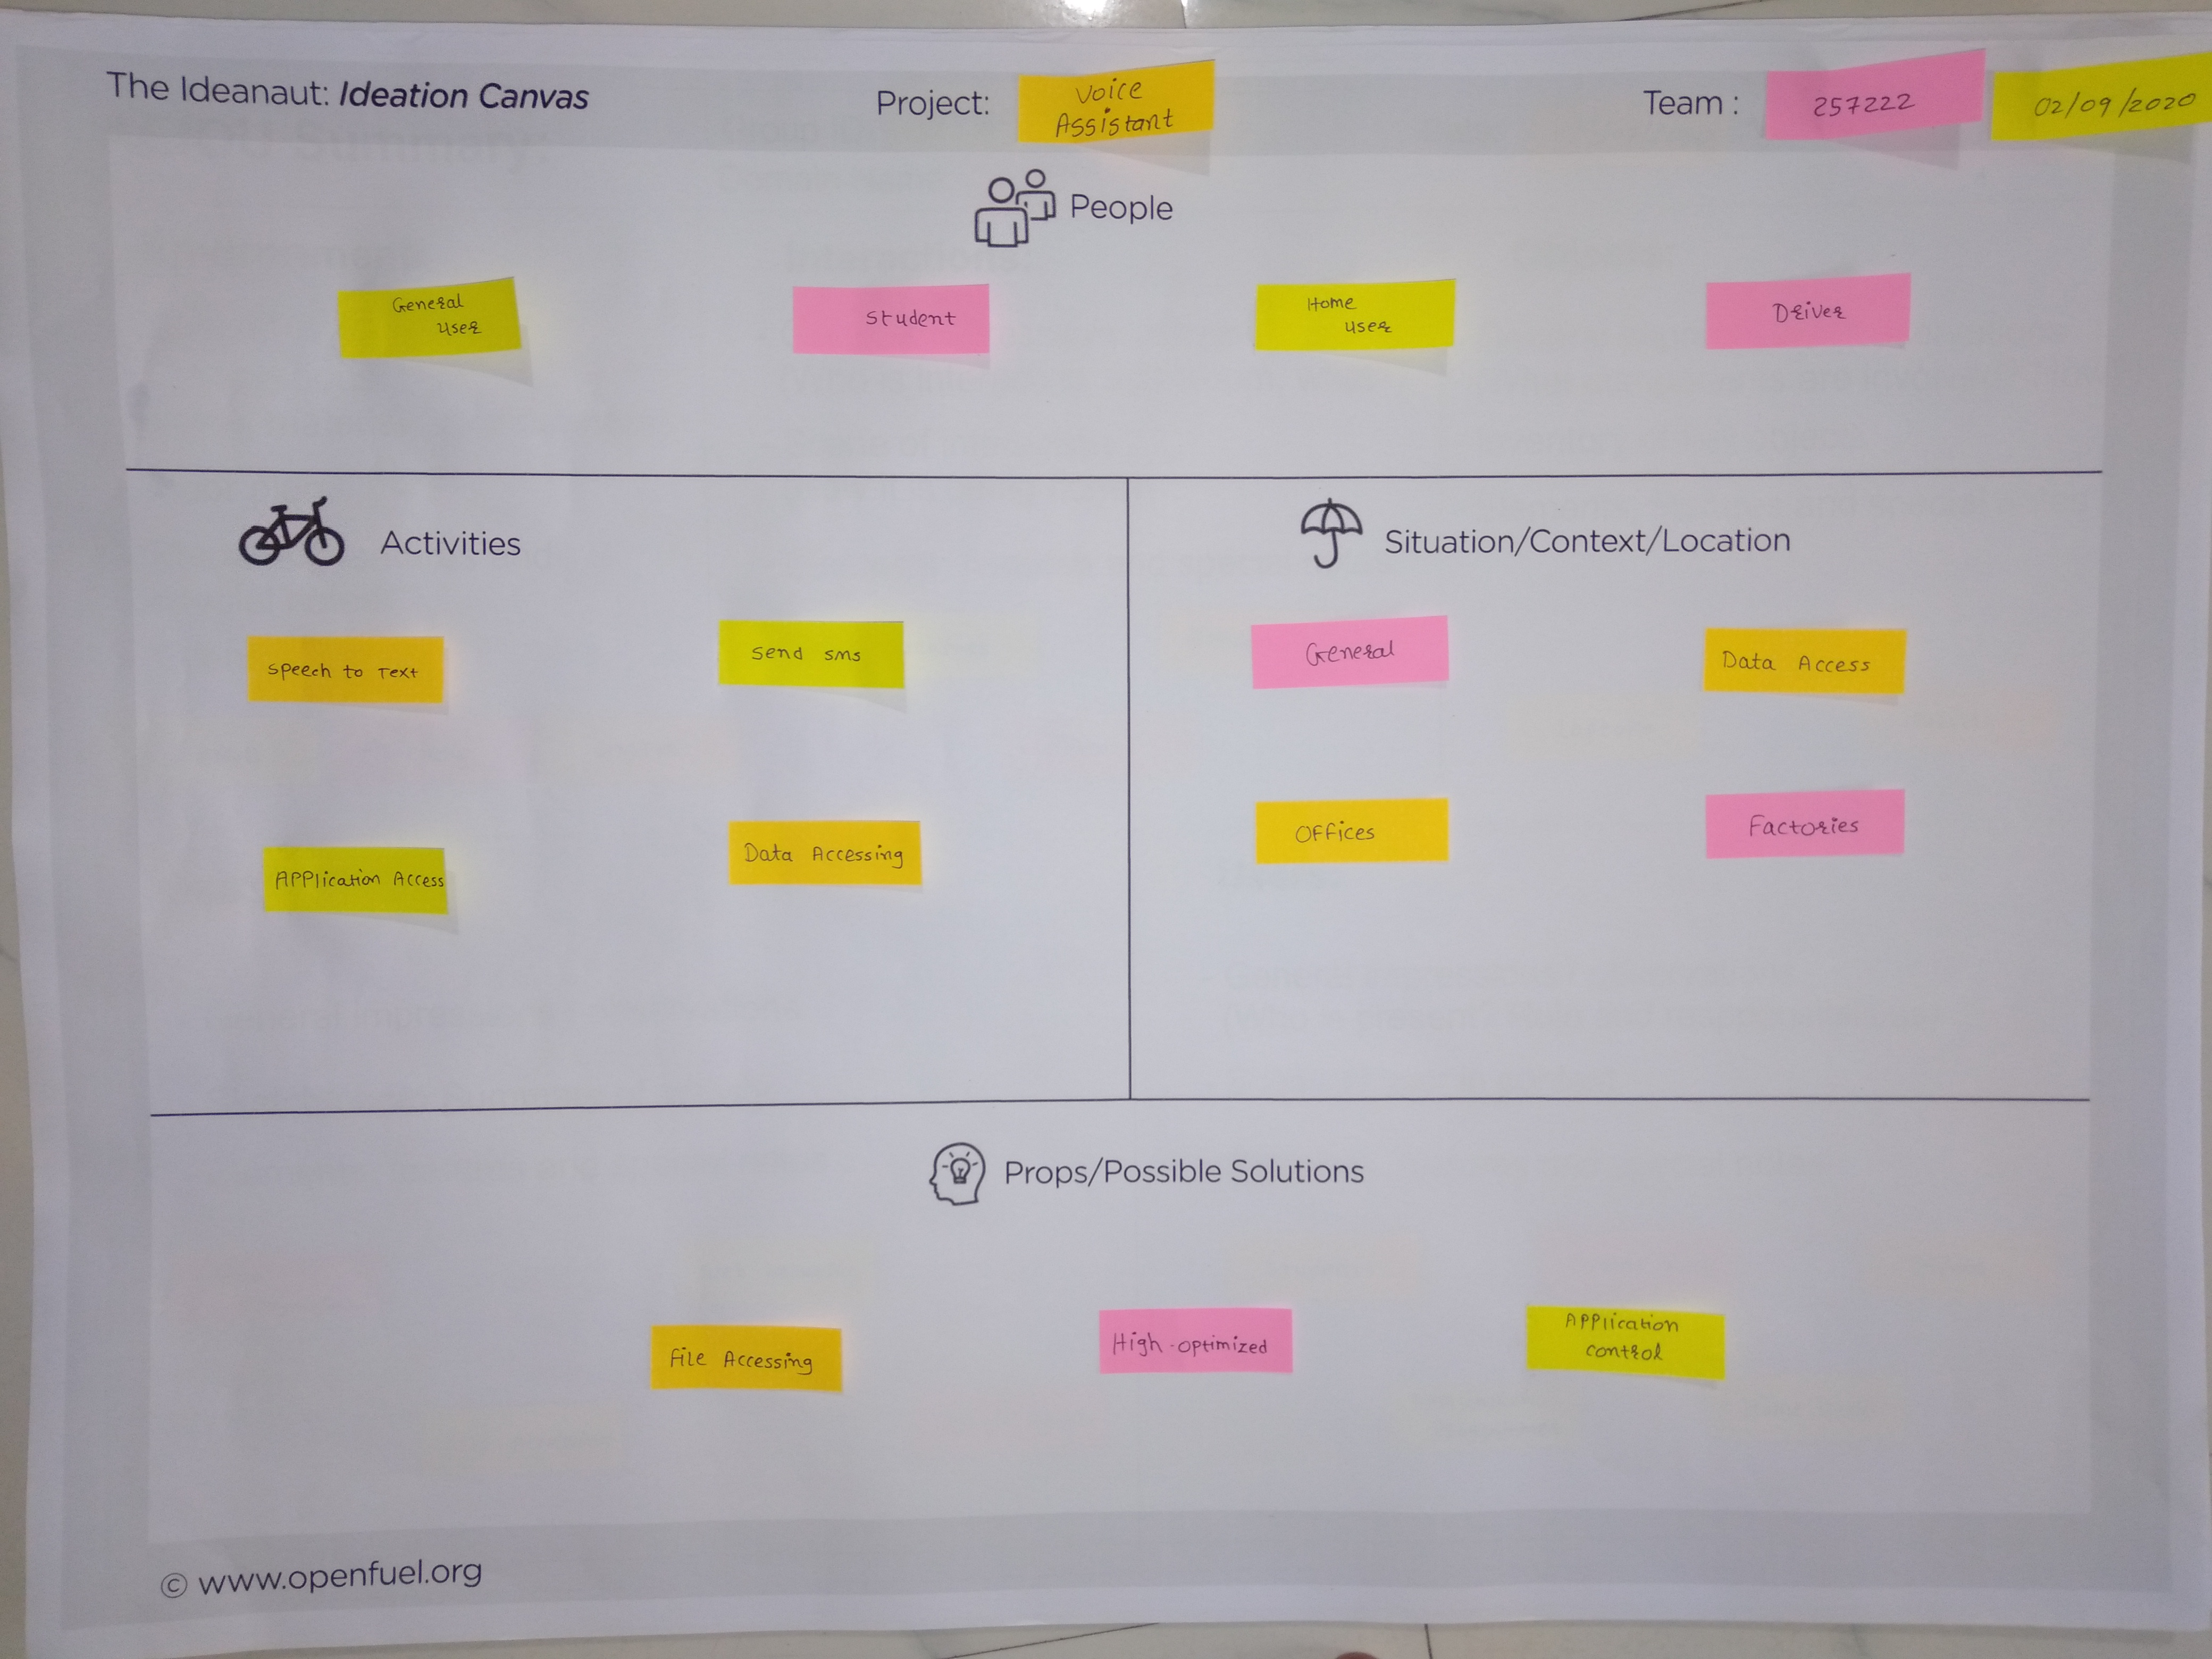 The Ideanaut: Ideation Canvas
Project:
Voice
Assistant
Team :
257222
02/09/2020
People
General
user
Student
Home
user
Driver
Activities
Speech to Text
Send sms
Application Access
Data Accessing
Situation/Context/Location
General
Data Access
Offices
Factories
Props/Possible Solutions
File Accessing
High-optimized
Application
control
© www.openfuel.org